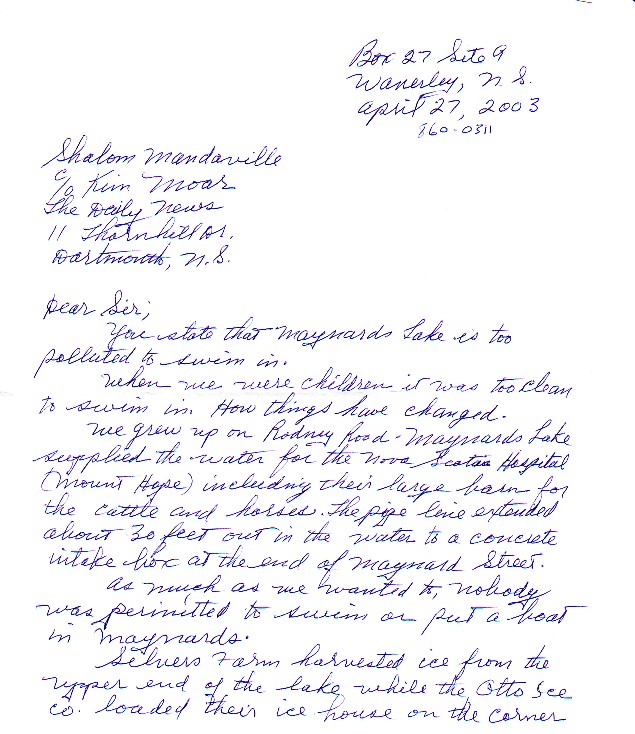 Box 27 Site 9
Waverley, N.S.
April 27, 2003
860-0311
Shalom Mandaville
c/o Kim Moar
The Daily News
11 Thornhill Dr.
Dartmouth, N.S.
Dear Sir;
You state that Maynards Lake is too
polluted to swim in.
When we were children it was too clean
to swim in. How things have changed.
We grew up on Rodney Road - Maynards Lake
supplied the water for the Nova Scotia Hospital
(Mount Hope) including their large barn for
the cattle and horses. The pipe line extended
about 30 feet out in the water to a concrete
intake box at the end of Maynard Street.
As much as we wanted to, nobody
was permitted to swim or put a boat
in Maynards.
Silvers Farm harvested ice from the
upper end of the lake while the Otto Ice
Co. loaded their ice house on the corner